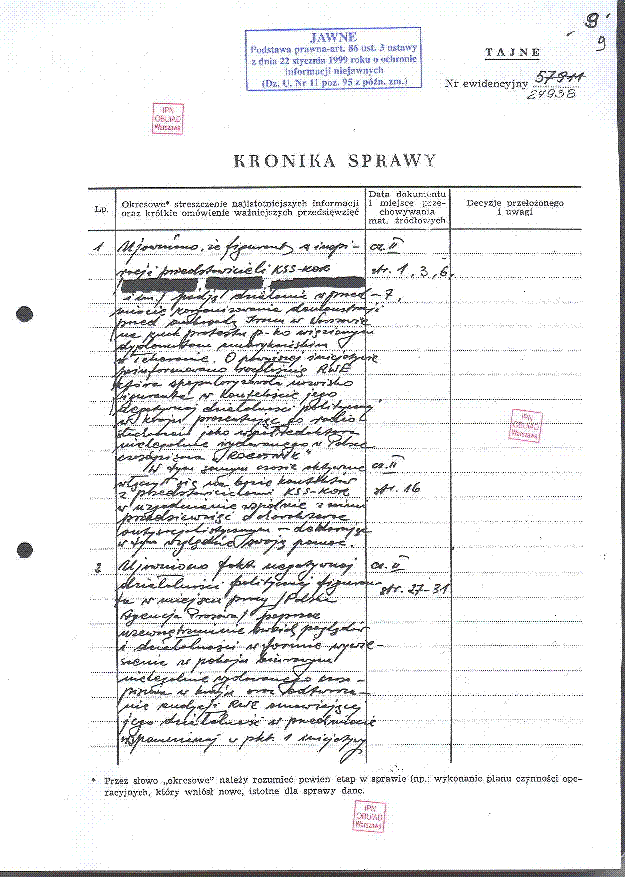 8
9
JAWNE
Podstawa prawna-art. 86 ust. 3 ustawy
z dnia 22 stycznia 1999 roku o ochronie
informacji niejawnych
(Dz. U. Nr 11 poz. 95 z późn. zm.)
TAJNE
Nr ewidencyjny 57911
24958
IPN
OBUiAD
Warszawa
KRONIKA SPRAWY
Lp.
Okresowe* streszczenie najistotniejszych informacji
oraz krótkie omówienie ważniejszych przedsięwzięć
Data dokumentu
i miejsce prze-
chowywania
mat. źródłowych
Decyzje przełożonego
i uwagi
1 Ujawniono, że figurant z inspi- cz. II
racji przedstawicieli KSS-KOR str. 1, 3, 6,
i innych podjął działanie w przed- 7,
miocie zorganizowania demonstracji
przed ambasadą Iranu w Warszawie
na znak protestu p-ko więzieniu
dyplomatów amerykańskich
w Teheranie. O powyższej inicjatywie
poinformowano rozgłośnię RWE
która spopularyzowała nazwisko
figuranta w kontekście jego
negatywnej działalności politycznej
w kraju prezentując go radio-
słuchaczom jako współredaktora
nielegalnie wydawanego w Polsce
czasopisma "ROBOTNIK"
W tym samym czasie aktywnie cz. II
włączył się na bazie kontaktów
z przedstawicielami KSS-KOR str. 16
w uzgadnianie wspólnie z nimi
przedsięwzięć o charakterze
antysocjalistycznym - deklarując
w tym względzie swoją pomoc.
2 Ujawniono fakt negatywnej cz. II
działalności politycznej figuran-
ta w miejscu pracy /Polska str. 27-31
Agencja Prasowa/ poprzez
uzewnętrznianie wrogich poglądów
i działalności w formie wywie-
szenia w pokoju biurowym
nielegalnie wydawanego czaso-
pisma w kraju oraz odtworze-
nie audycji RWE omawiającej
jego działalność w przedmiocie
wspomnianej w pkt. 1 inicjatywy
IPN
OBUiAD
Warszawa
* Przez słowo „okresowe" należy rozumieć pewien etap w sprawie (np.: wykonanie planu czynności ope-
racyjnych, który wniósł nowe, istotne dla sprawy dane.
IPN
OBUiAD
Warszawa